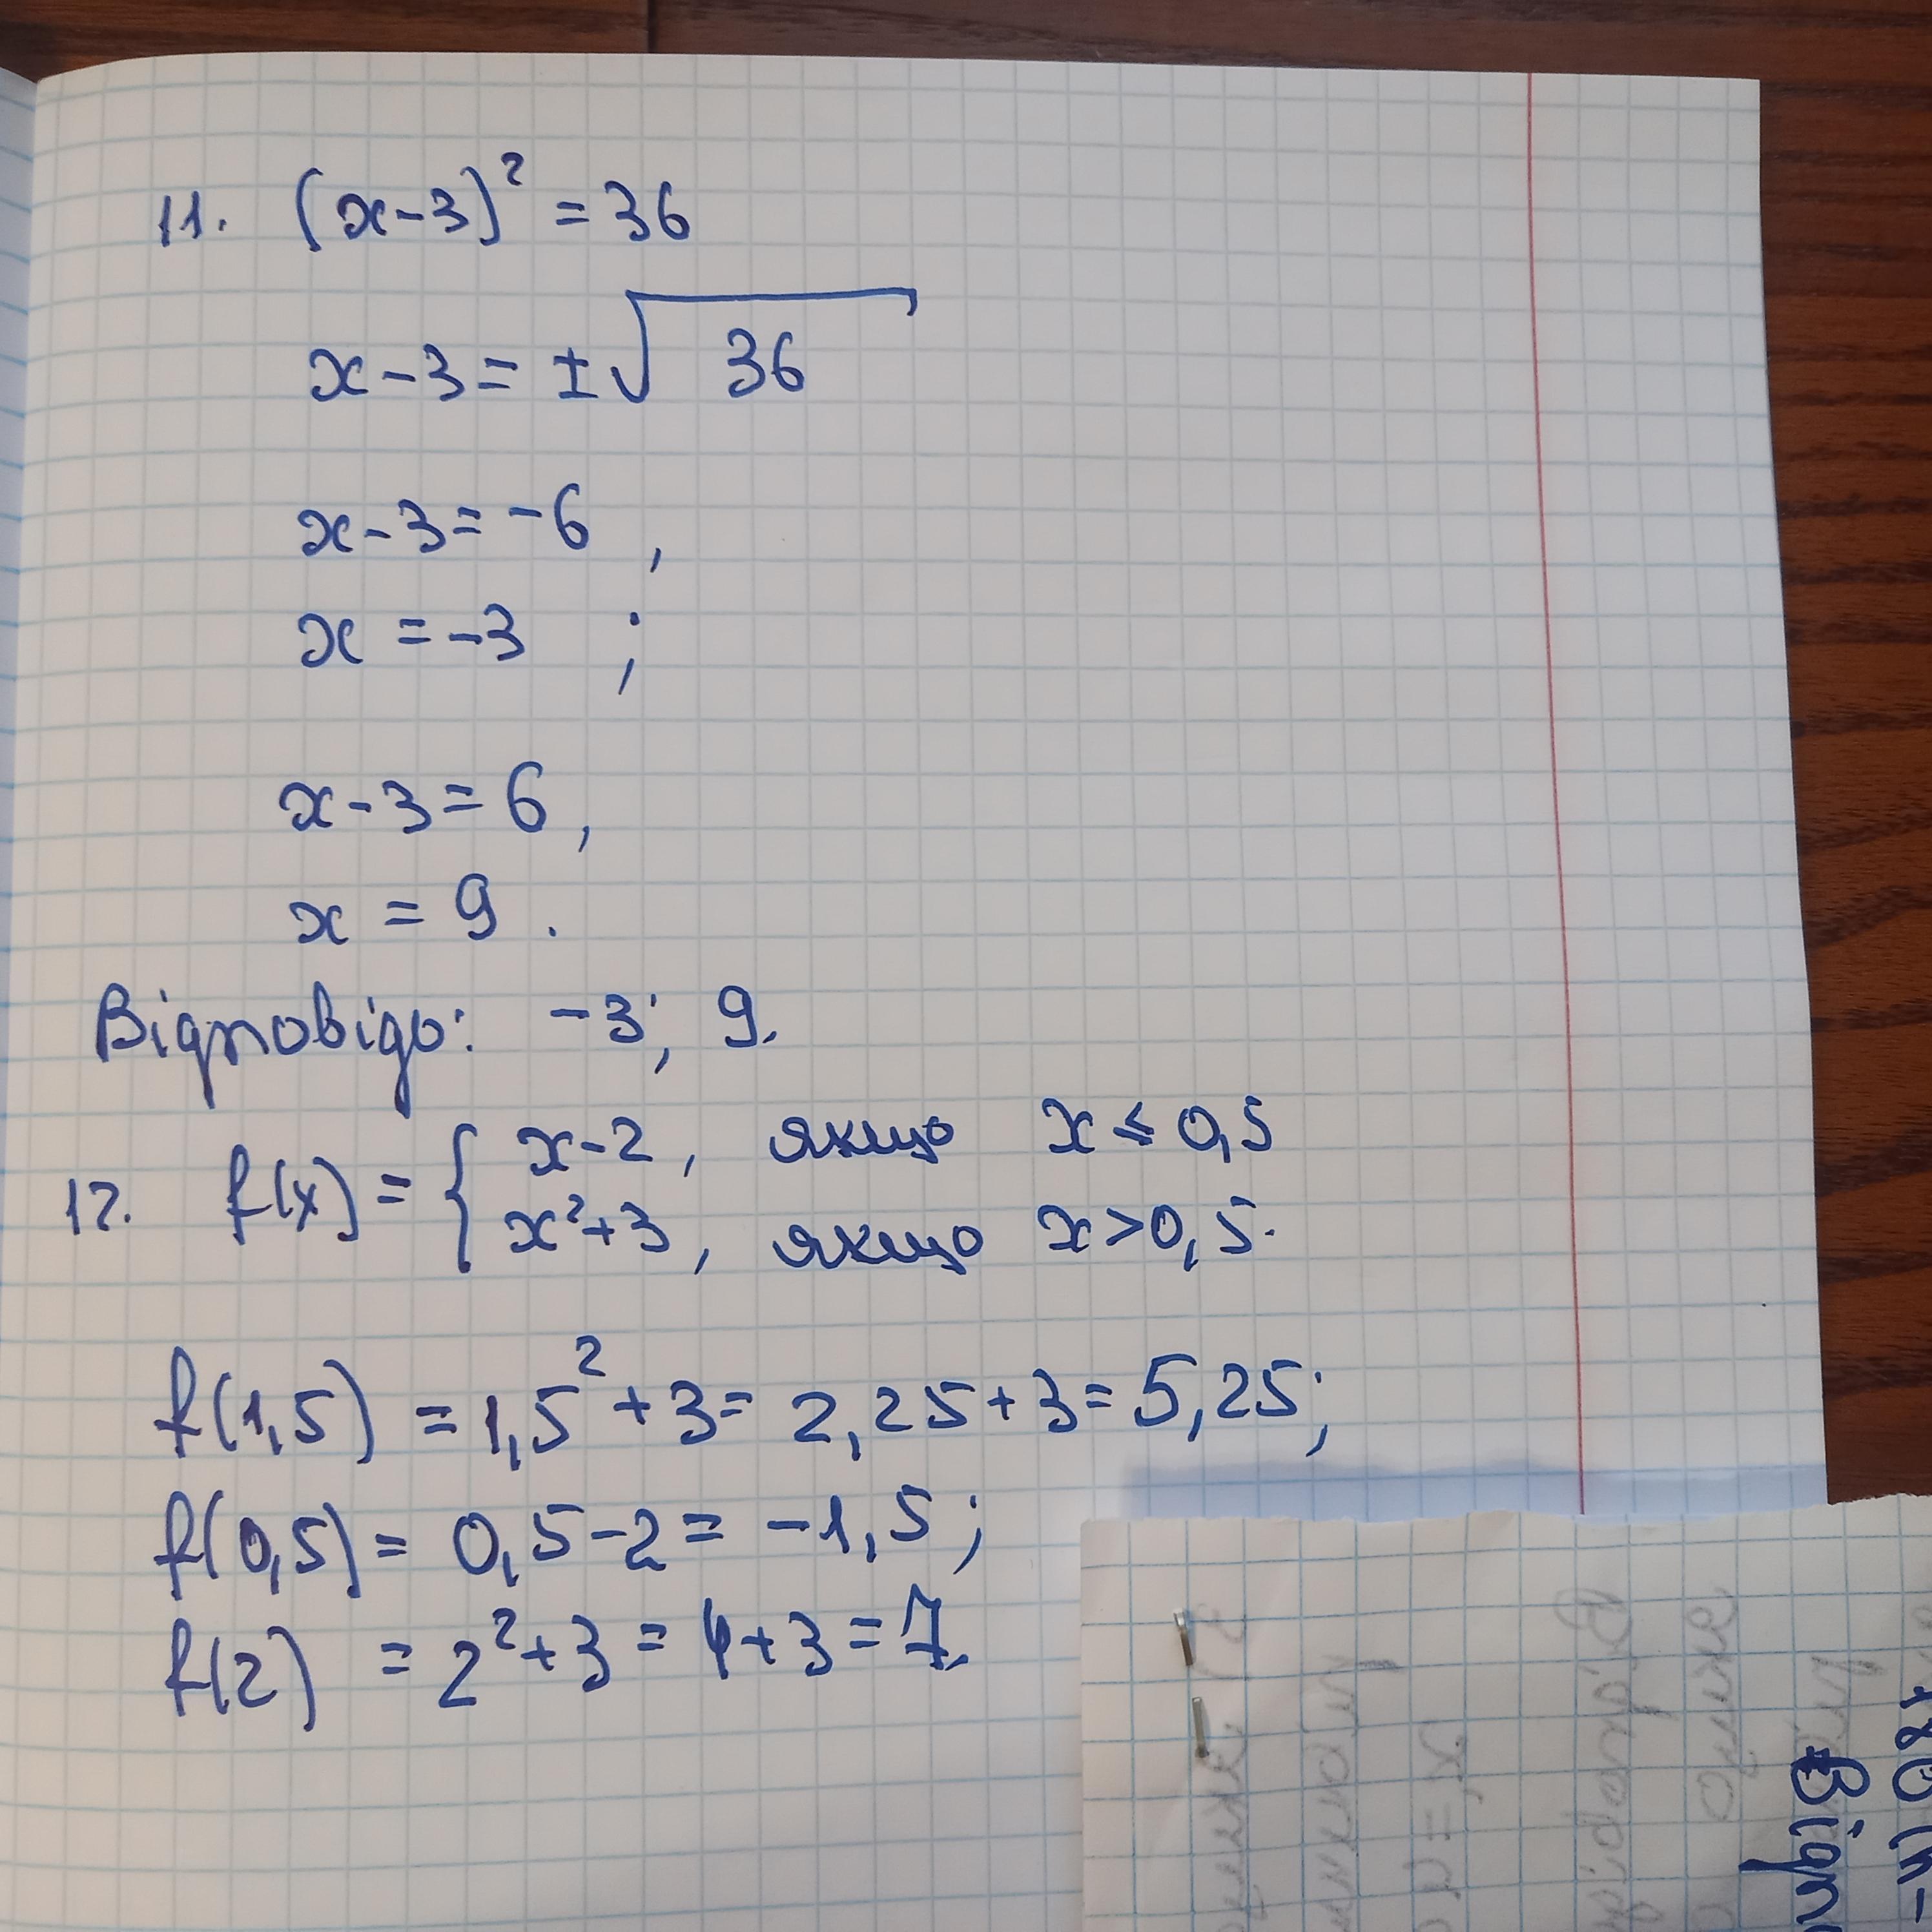 11. (x-3)² = 36
x-3 = ±√36
x-3 = -6 ,
x = -3 ;
x-3 = 6,
x = 9 .
Відповідь: -3; 9.
12. f(x) = { x-2, якщо x ≤ 0,5
x²+3, якщо x>0,5.
f(1,5) = 1,5² + 3 = 2,25+3 = 5,25;
f(0,5) = 0,5-2 = -1,5;
f(2) = 2²+3 = 4+3 = 7.